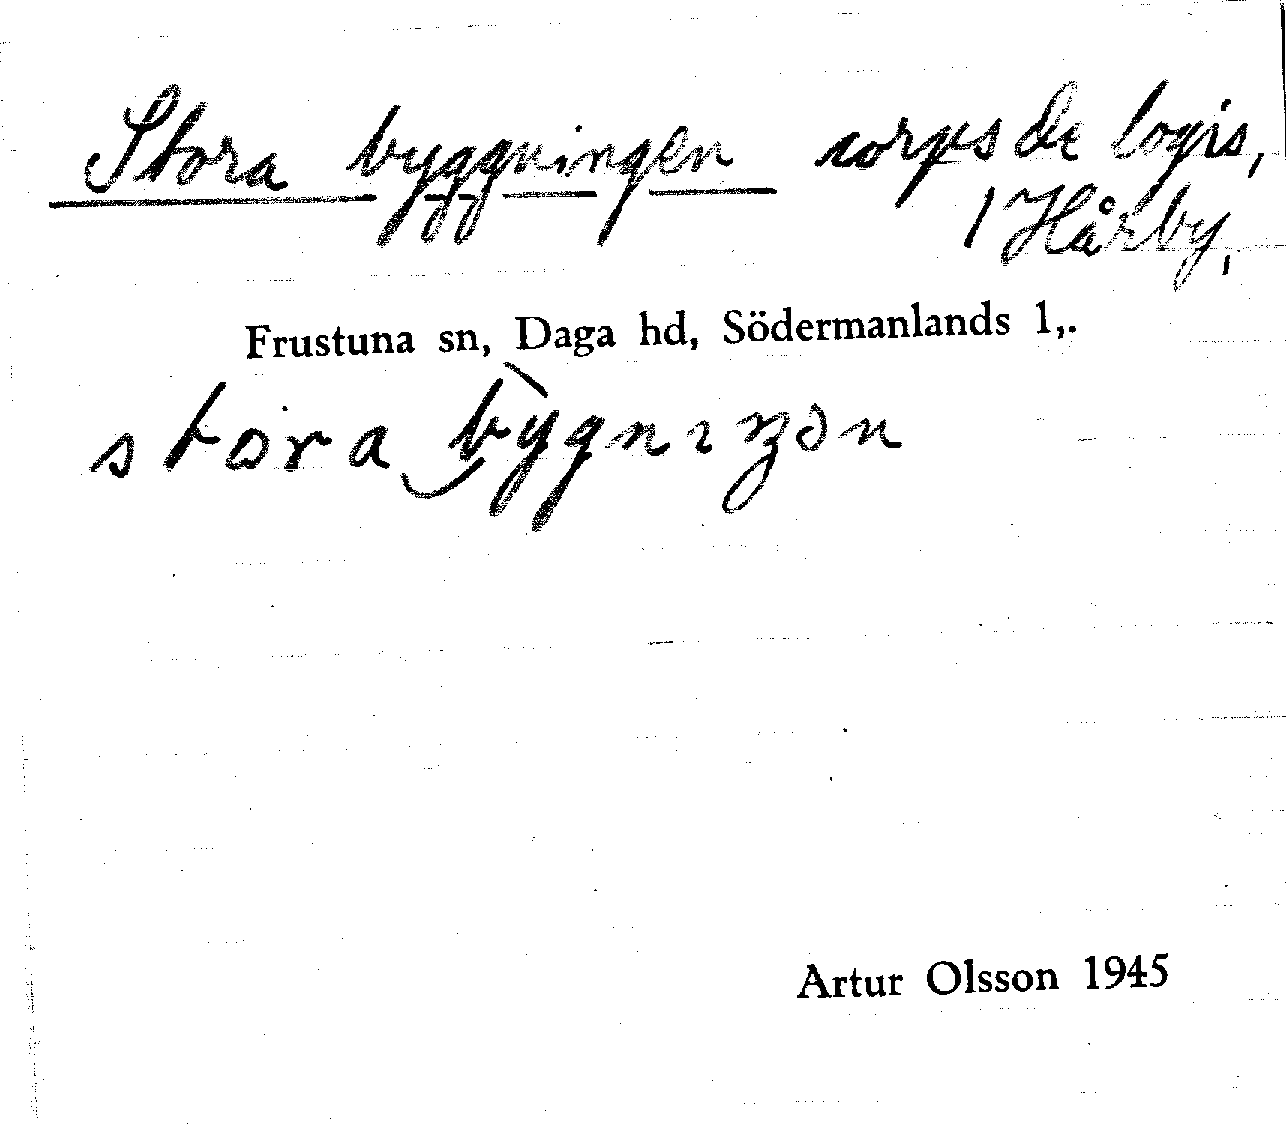 Stora byggningen corps de logis,
/ Hårby,
Frustuna sn, Daga hd, Södermanlands l,.
stora bỳgnıŋən
Artur Olsson 1945